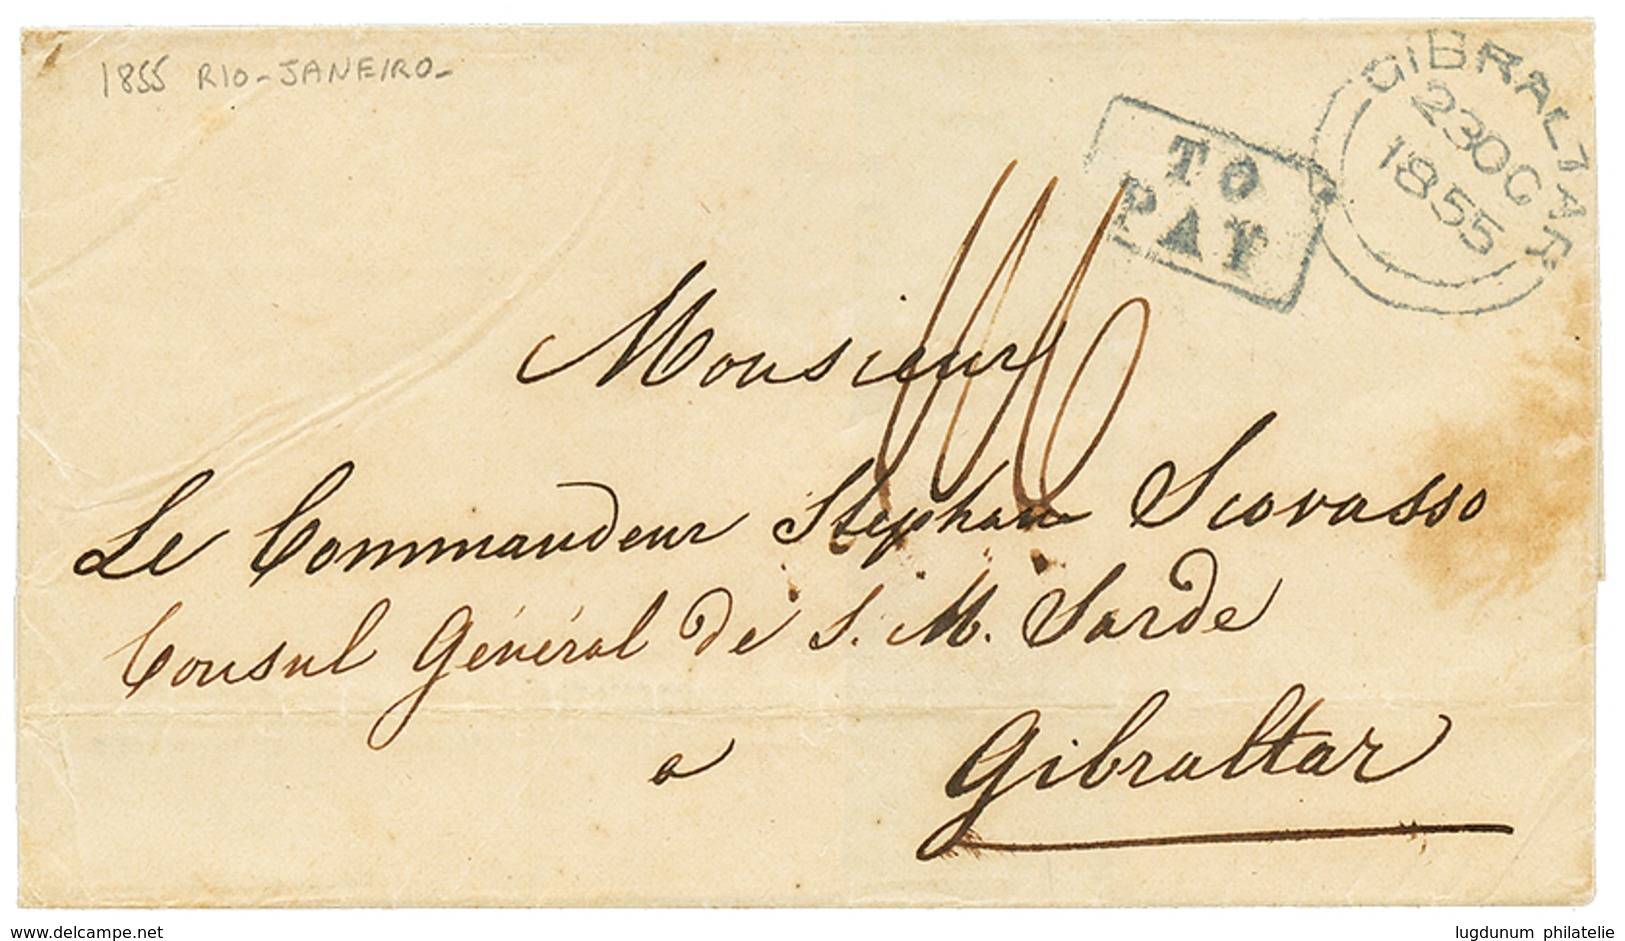 1855 RIO-JANEIRO-
GIBRALTAR
23 OC
1855
TO
PAY
Monsieur
Le Commandeur Stephan Scovasso
Consul Général de S. M. Sarde
a Gibraltar
delcampe.net
lugdunum philatelie